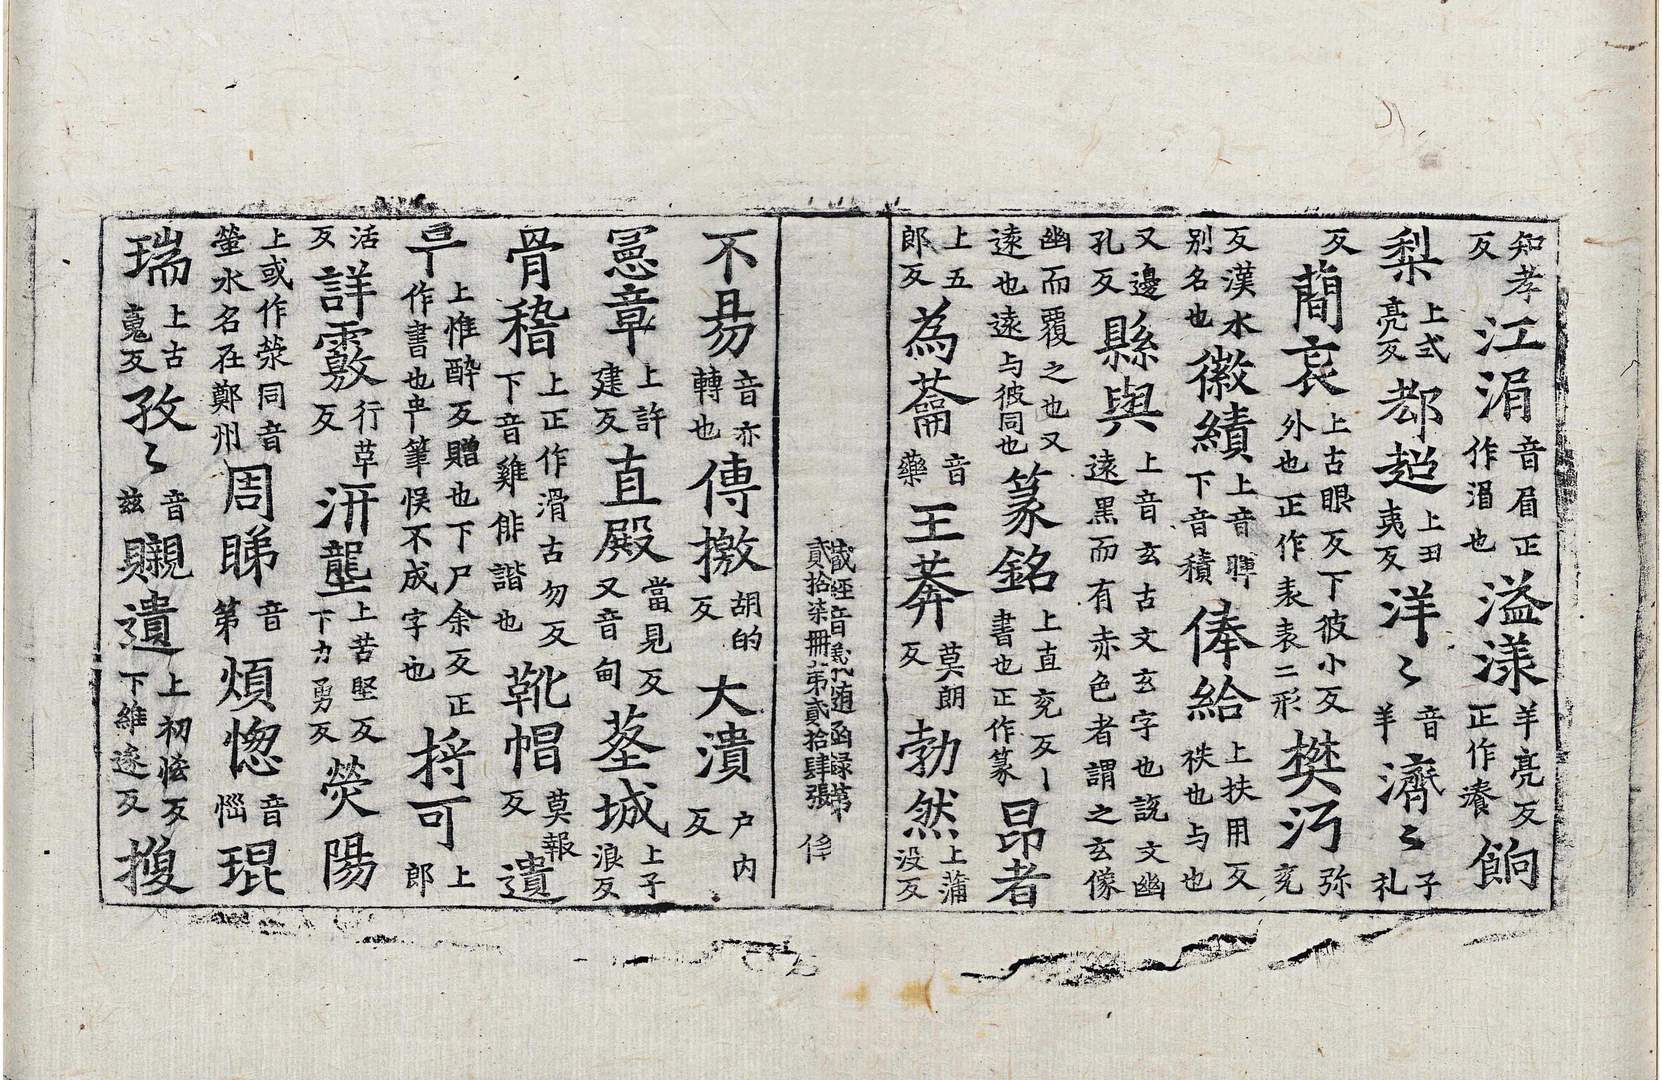 知孝反江涓音眉正作湄也溢漾羊亮反正作瀁餉
梨上式亮反都超上丑夷反洋〻音羊濟〻子礼
反蕳哀上古眼反下彼小反外也正作表表二形樊沔弥兖
反漢水別名也徽績上音暉下音積俸給上扶用反秩也与也
又邊孔反縣與上音玄古文玄字也說文幽遠黑而有赤色者謂之玄像
幽而覆之也又遠也遠与彼同也篆銘上直兖反丨書也正作篆昂者
上五郎反為蘥音藥王莽莫朗反勃然上蒲没反
藏經音義隨函録第貳拾柒冊第貳拾肆張 俻
不昜音亦轉也傳撽胡的反大潰户内反
冕章上許建反直殿當見反又音甸茎城上子浪反
骨稽上正作滑古勿反下音雞俳諧也靴帽莫報反遺
上惟醉反贈也下尸余反正作書也𦘒筆悮不成字也捋可上郎
活反詳覈行革反汧壟上苦堅反下力勇反熒陽
上或作滎同音螢水名在鄭州周睇音第煩惚音惱琨
瑞上古䰟反孜〻音兹䞋遺上初恡反下維遂反𢮦